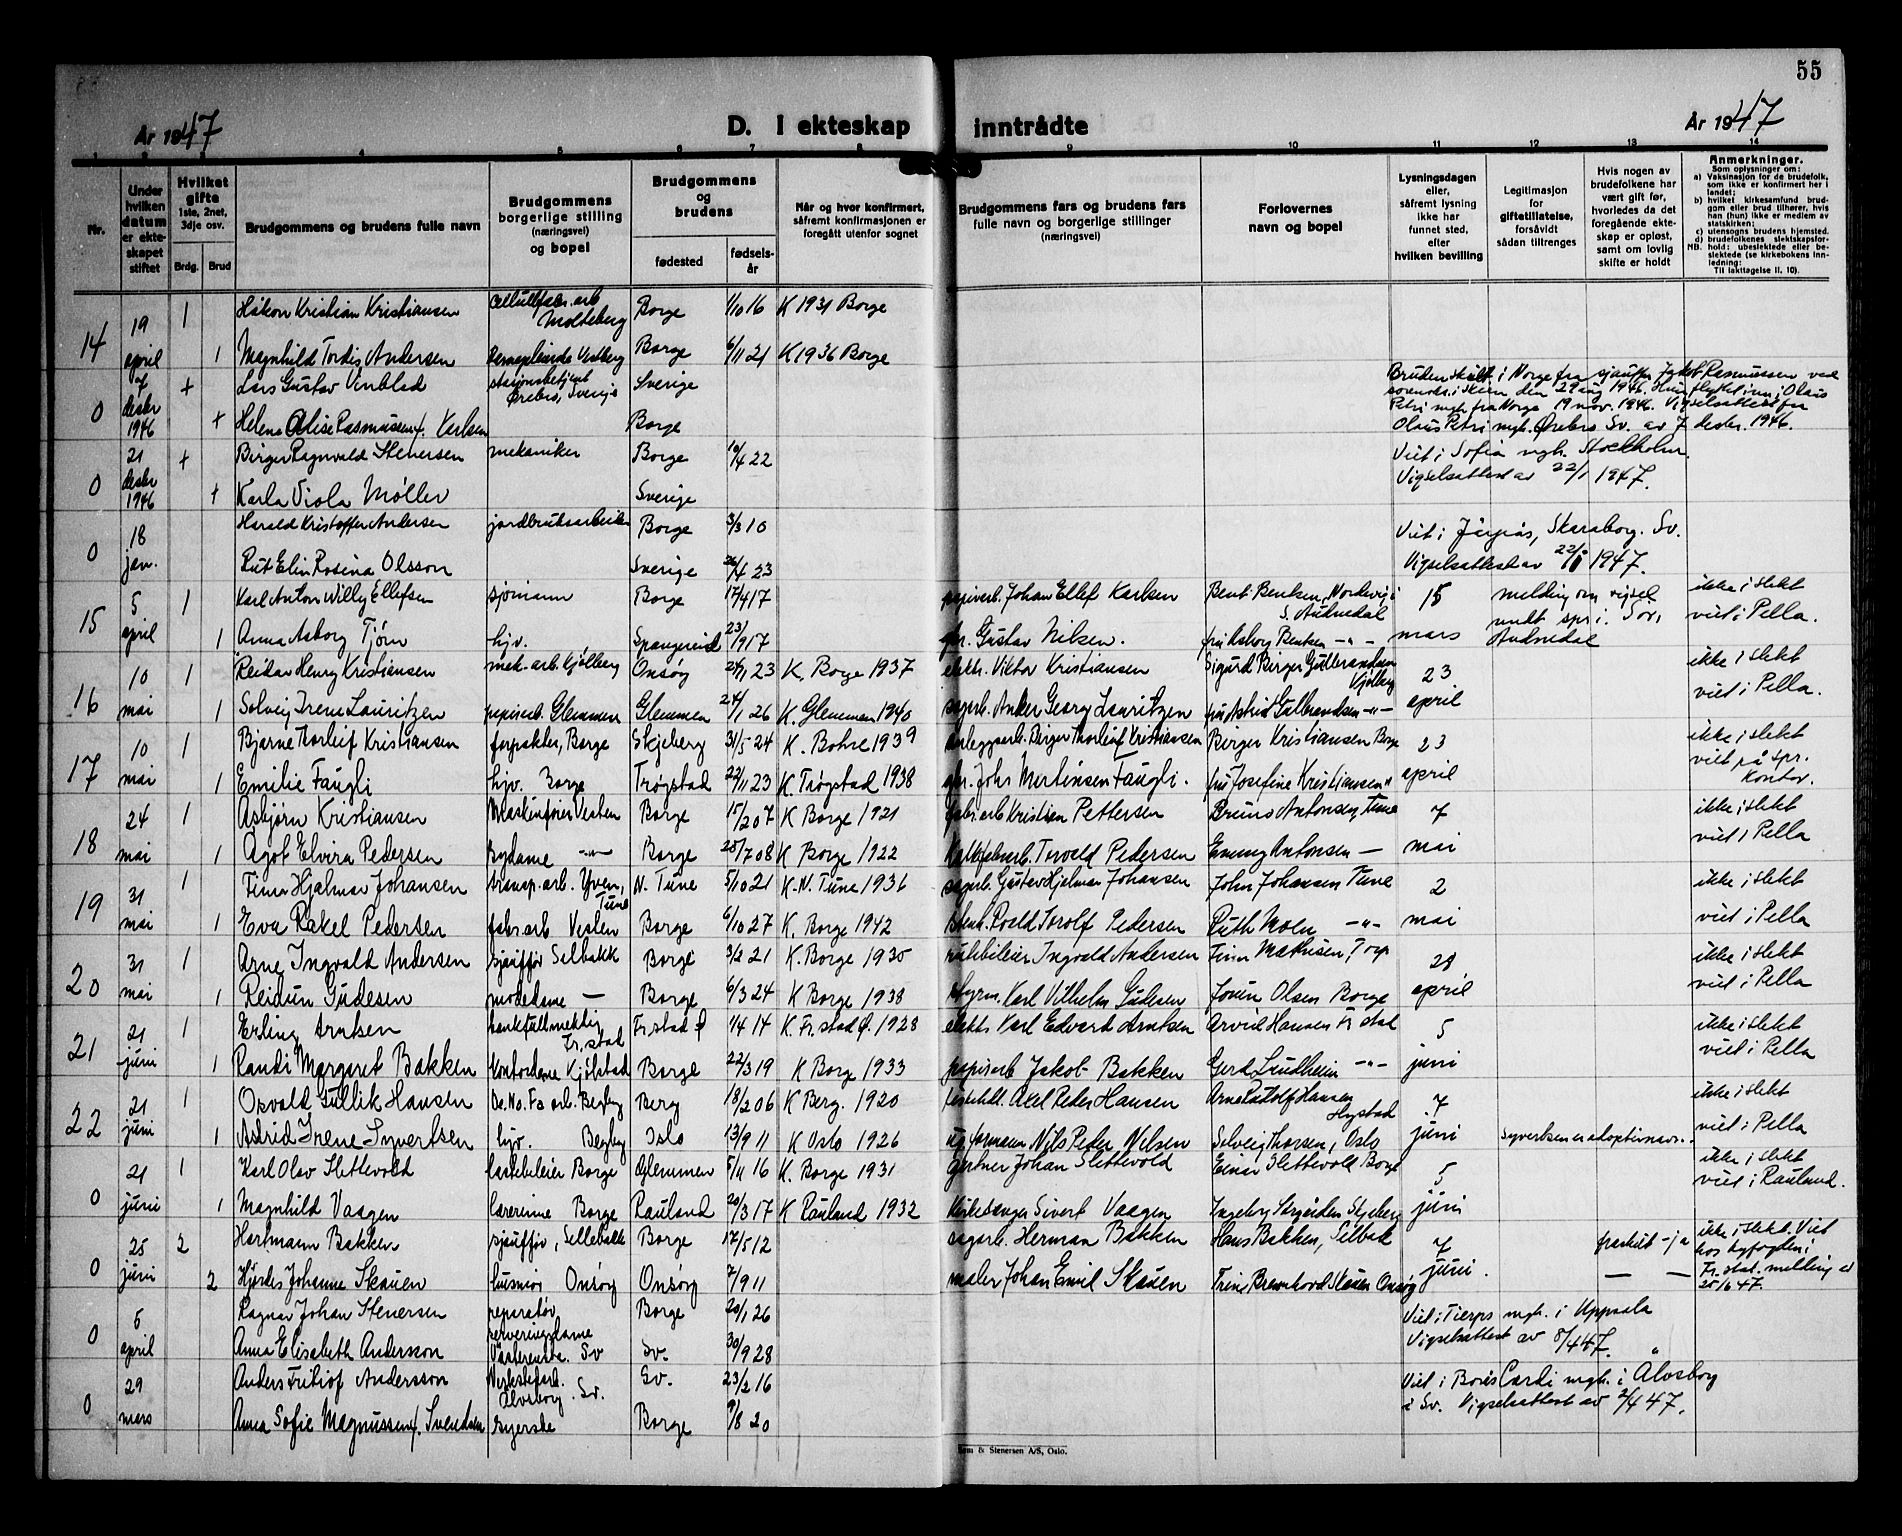 55
År 1947
D. I ekteskap inntrådte
År 1947
1 2 3 4 5 6 7 8 9 10 11 12 13 14
Nr.
Under hvilken datum er ekteskapet stiftet
Hvilket gifte 1ste, 2net, 3dje osv.
Brdg. Brud
Brudgommens og brudens fulle navn
Brudgommens borgerlige stilling (næringsvei) og bopel
Brudgommens og brudens
fødested
fødselsår
Når og hvor konfirmert, såfremt konfirmasjonen er foregått utenfor sognet
Brudgommens fars og brudens fars fulle navn og borgerlige stillinger (næringsvei)
Forlovernes navn og bopel
Lysningsdagen eller, såfremt lysning ikke har funnet sted, efter hvilken bevilling
Legitimasjon for giftetillatelse, forsåvidt sådan tiltrenges
Hvis nogen av brudefolkene har vært gift før, hvorledes da det foregående ekteskap er opløst, samt om lovlig skifte er holdt
Anmerkninger.
Som oplysninger om:
a) Vaksinasjon for de brudefolk, som ikke er konfirmert her i landet;
b) hvilket kirkesamfund brudgom eller brud tilhører, hvis han (hun) ikke er medlem av statskirken;
c) utensogns brudens hjemsted.
d) brudefolkenes slektskapsforhold: ubeslektede eller beslektede (se kirkebokens innledning:
NB. Til iakttagelse II, 10).
14 19 april 1 Håkon Kristian Kristiansen cellulfabr.arb Molteberg Borge 1/10 16 K 1931 Borge
1 Magnhild Tordis Andersen Vestberg Borge 6/11 21 K 1936 Borge
0 7 desbr 1946 + Lars Gustav Vinblad stasjonsbetjent Örebro, Sverige Sverige
+ Helena Alise Rasmussen f. Karlsen Borge
Bruden skilt i Norge fra sjauffør Jakob Rasmussen ved
i Skien den 29 aug 1946. Hun flyttet inn i Olaus
Petri mgh. fra Norge 19 nov. 1946. Vigselsattest fra
Olaus Petri mgh. Örebro Sv. av 7 desbr. 1946.
0 21 desbr 1946 + Birger Ragnvald Stenersen mekaniker Borge 10/4 22 Viet i Sofia mgh. Stockholm.
+ Karla Viola Møller Sverige Vigselsattest av 22/1 1947.
0 18 jan. Harald Kristoffer Andersen jordbruksarbeider Borge 3/3 10 Viet i Skaraborg. Sv.
Rut Elin Rosina Olsson Sverige 26/4 23 Vigselsattest av 1947.
15 5 april 1 Karl Anton Willy Ellefsen sjømann Borge 17/4 17 papirarb. Johan Ellef Karlsen Bent Bentsen, S. Audnedal 15 mars melding om vigsel mdt spr. i Sør Audnedal ikke i slekt
1 Anna Asborg Tjørn hjv. Spangereid 23/9 17 Gustav Nilsen. fru Asborg Bentsen -"- viet i Pella.
16 10 mai 1 Reidar Henry Kristiansen mek. arb. Kjølberg Onsøy 23 K. Borge 1937 elektr. Viktor Kristiansen Sigurd Birger Gulbrandsen Kjølberg 23 april ikke i slekt
1 Solveig Irene Lauritzen papirarb. Glemmen Glemmen 24/1 26 K. Glemmen 1940 sagarb. Anker Georg Lauritzen fru Astrid Gulbrandsen -"- viet i Pella.
17 10 mai 1 Bjarne Thorleif Kristiansen forpakter, Borge Skjeberg 31/5 24 K. 1939 anleggsarb. Birger Thorleif Kristiansen Birger Kristiansen Borge 23 april ikke i slekt
1 Emilie Faugli hjv. Borge Trøgstad 22/11 23 K. Trøgstad 1938 Johs Martinsen Faugli. fru Josefine Kristiansen " viet på spr. kontor.
18 24 mai 1 Asbjørn Kristiansen Maskinfører Vesten Borge 15/2 07 K Borge 1921 fabr.arb Kristian Pettersen Bruno Antonsen, Tune 7 mai ikke i slekt
1 Agot Elvira Pedersen sydame -"- Borge 28/7 08 K Borge 1922 Torvald Pedersen Emmy Antonsen — viet i Pella
19 31 mai 1 Finn Hjalmar Johansen transp. arb. Yven, Tune N. Tune 5/10 21 K. N. Tune 1936 sagarb. Gustav Hjalmar Johansen John Johansen Tune 2 mai ikke i slekt
1 Eva Rakel Pedersen fabr.arb Vesten Borge 6/10 27 K. Borge 1942 Torolf Pedersen Ruth Moen -"- viet i Pella
20 31 mai 1 Arne Ingvald Andersen sjauffør Selbakk Borge 3/2 21 K. Borge 1935 rutebileier Ingvald Andersen Finn Mathisen, Torp 28 april ikke i slekt
1 Reidun Gudesen motedame — Borge 6/3 24 K Borge 1938 Karl Vilhelm Gudesen Olsen Borge viet i Pella
21 21 juni 1 Erling Arntsen bankfullmektig Fr.stad Fr.stad Ø 1/4 14 K. Fr.stad Ø. 1928 elektr. Karl Edvard Arntsen Arvid Hansen Fr.stad 5 juni ikke i slekt
1 Randi Margaret Bakken kontordame Kjølstad Borge 22/3 19 K Borge 1933 papirarb Jakob Bakken Gerd Lundheim -"- viet i Pella
22 21 juni 1 Osvald Gullik Hansen De. No. Fa arb. Begby Berg 18/2 06 K Berg. 1920 Axel Peder Hansen Arne Rudolf Hansen 7 juni ikke i slekt
1 Astrid Irene Syvertsen hjv. Begby Oslo 13/9 11 K Oslo 1926 formann Nils Peder Nilsen Solveig Thorsen, Oslo Syvertsen er adoptivnavn. viet i Pella
0 21 juni 1 Karl Olav Slettevold lastebileier Borge Glemmen 5/11 16 K. Borge 1931 gartner Johan Slettevold Einar Slettevold Borge 5 juni ikke i slekt
1 Magnhild Vaagen lærerinne Borge Rauland 20/3 17 K Rauland 1932 kirkesanger Sivert Vaagen Ingeborg Skjeberg viet i Rauland.
0 25 juni 2 Hartmann Bakken sjauffør, Sellebakk Borge 17/5 12 sagarb. Herman Bakken Hans Bakken, Selbak 7 juni. fraskilt - ja ikke i slekt. Viet hos byfogden i
2 Hjørdis Johanne Skauen husmor Onsøy Onsøy 7/9 11 maler Johan Emil Skauen Skauen Onsøy — — Fr.stad. melding av 25/6 47.
0 6 april Ragnar Johan Stenersen reparatør Borge 20/1 26 Viet i Tierps mgh. i Uppsala
Anna Elisabeth Andersson serveringsdame Sv Sv. 30/9 28 Vigselsattest av 8/4 47. "
0 29 mars Anders Fritiof Andersson Älvsborg. Sv. Sv. 23/2 16 Viet i mgh. i Älvsborg
Anna Sofie Magnussen f. Svendsen syerske Borge 9/8 20 i Sv. Vigselsattest av 2/4 47.
& Stenersen A/S, Oslo.